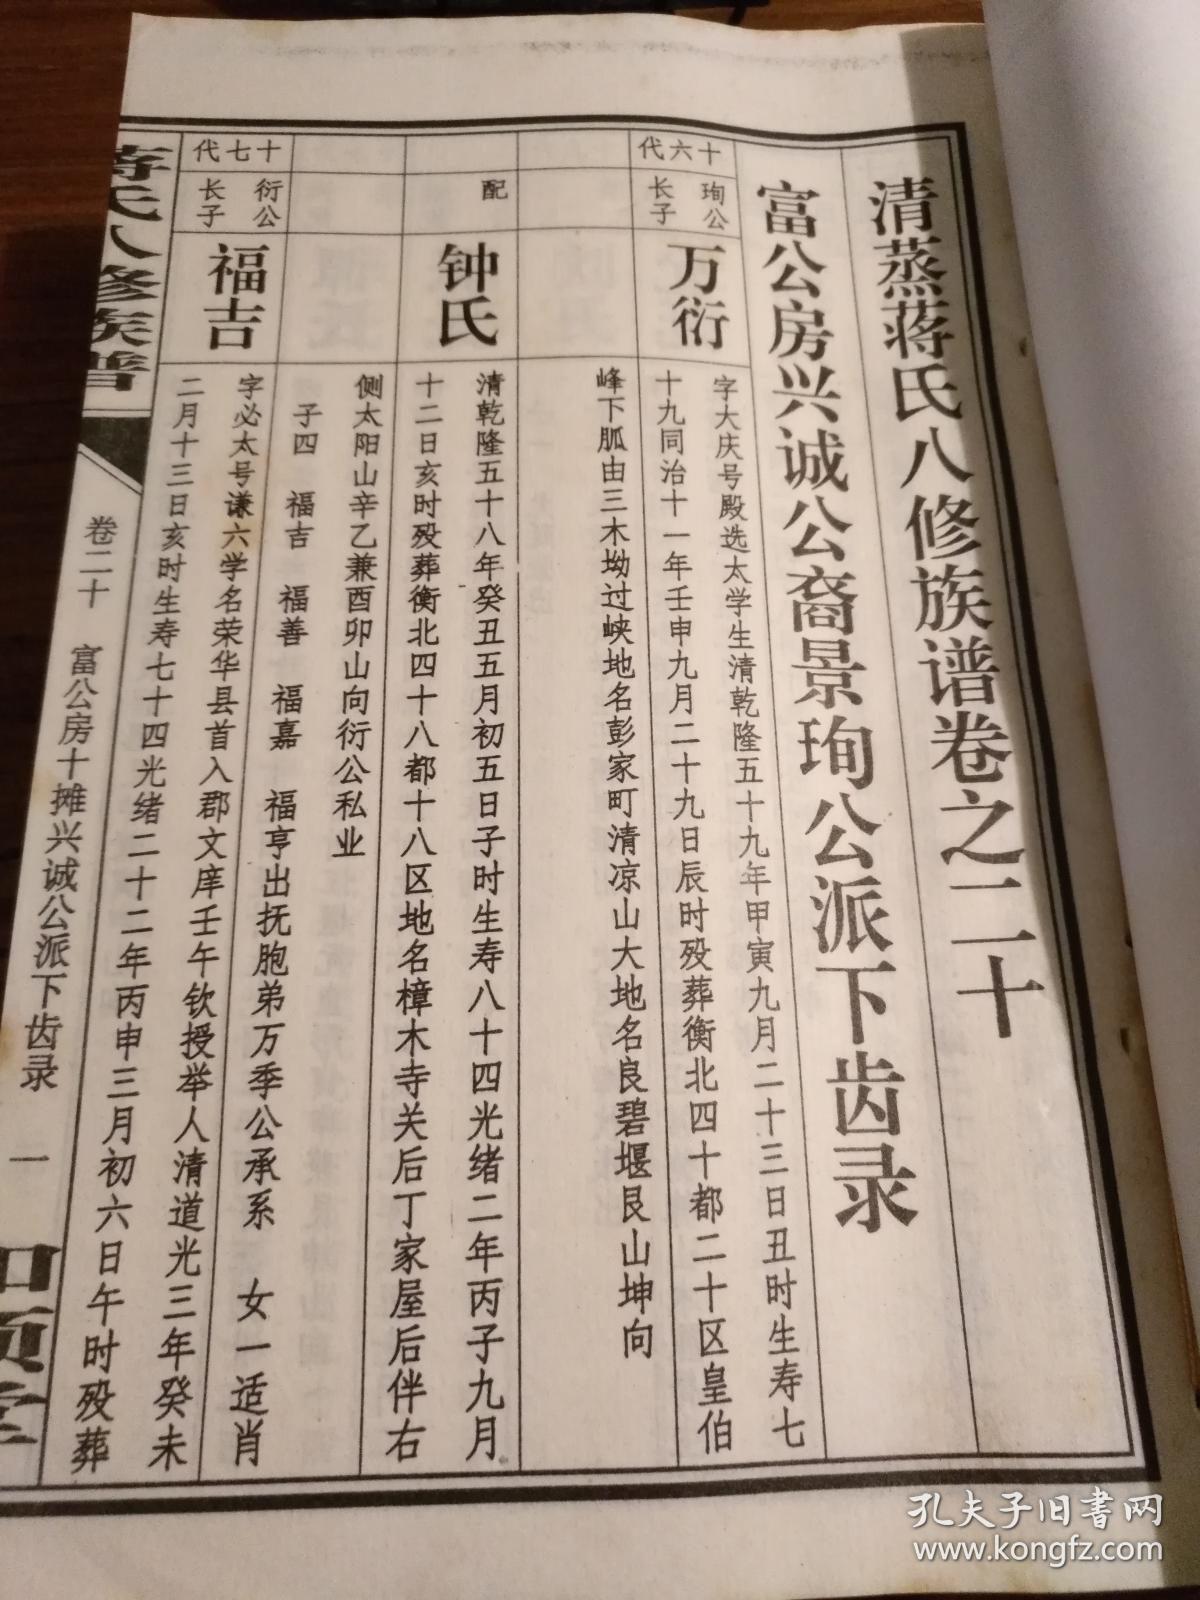 清蒸蒋氏八修族谱卷之二十
富公房兴诚公裔景珣公派下齿录
十六代
珣公长子
万衍
字大庆号殿选太学生清乾隆五十九年甲寅九月二十三日丑时生寿七
十九同治十一年壬申九月二十九日辰时殁葬衡北四十都二十区皇伯
峰下胍由三木坳过峡地名彭家町清凉山大地名良碧堰艮山坤向
配
钟氏
清乾隆五十八年癸丑五月初五日子时生寿八十四光绪二年丙子九月
十二日亥时殁葬衡北四十八都十八区地名樟木寺关后丁家屋后伴右
侧太阳山辛乙兼酉卯山向衍公私业
子四 福吉 福善 福嘉 福亨出抚胞弟万季公承系 女一适肖
十七代
衍公长子
福吉
字必太号谦六学名荣华县首入郡文庠壬午钦授举人清道光三年癸未
二月十三日亥时生寿七十四光绪二十二年丙申三月初六日午时殁葬
蒋氏八修族谱
卷二十 富公房十摊兴诚公派下齿录 一
孔夫子旧书网
www.kongfz.com